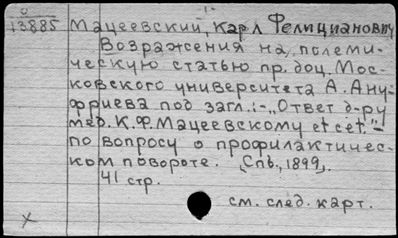 -1-
0
13885 Мацеевский, Карл Фелицианович
Возражения на полеми-
ческую статью пр. доц. Мос-
ковского университета А. Ану-
фриева под загл.:- „Ответ д-ру
мед. К.Ф. Мацеевскому et cet."-
по вопросу о профилактичес-
ком повороте. [Спб., 1899].
41 стр.
см. след. карт.
x